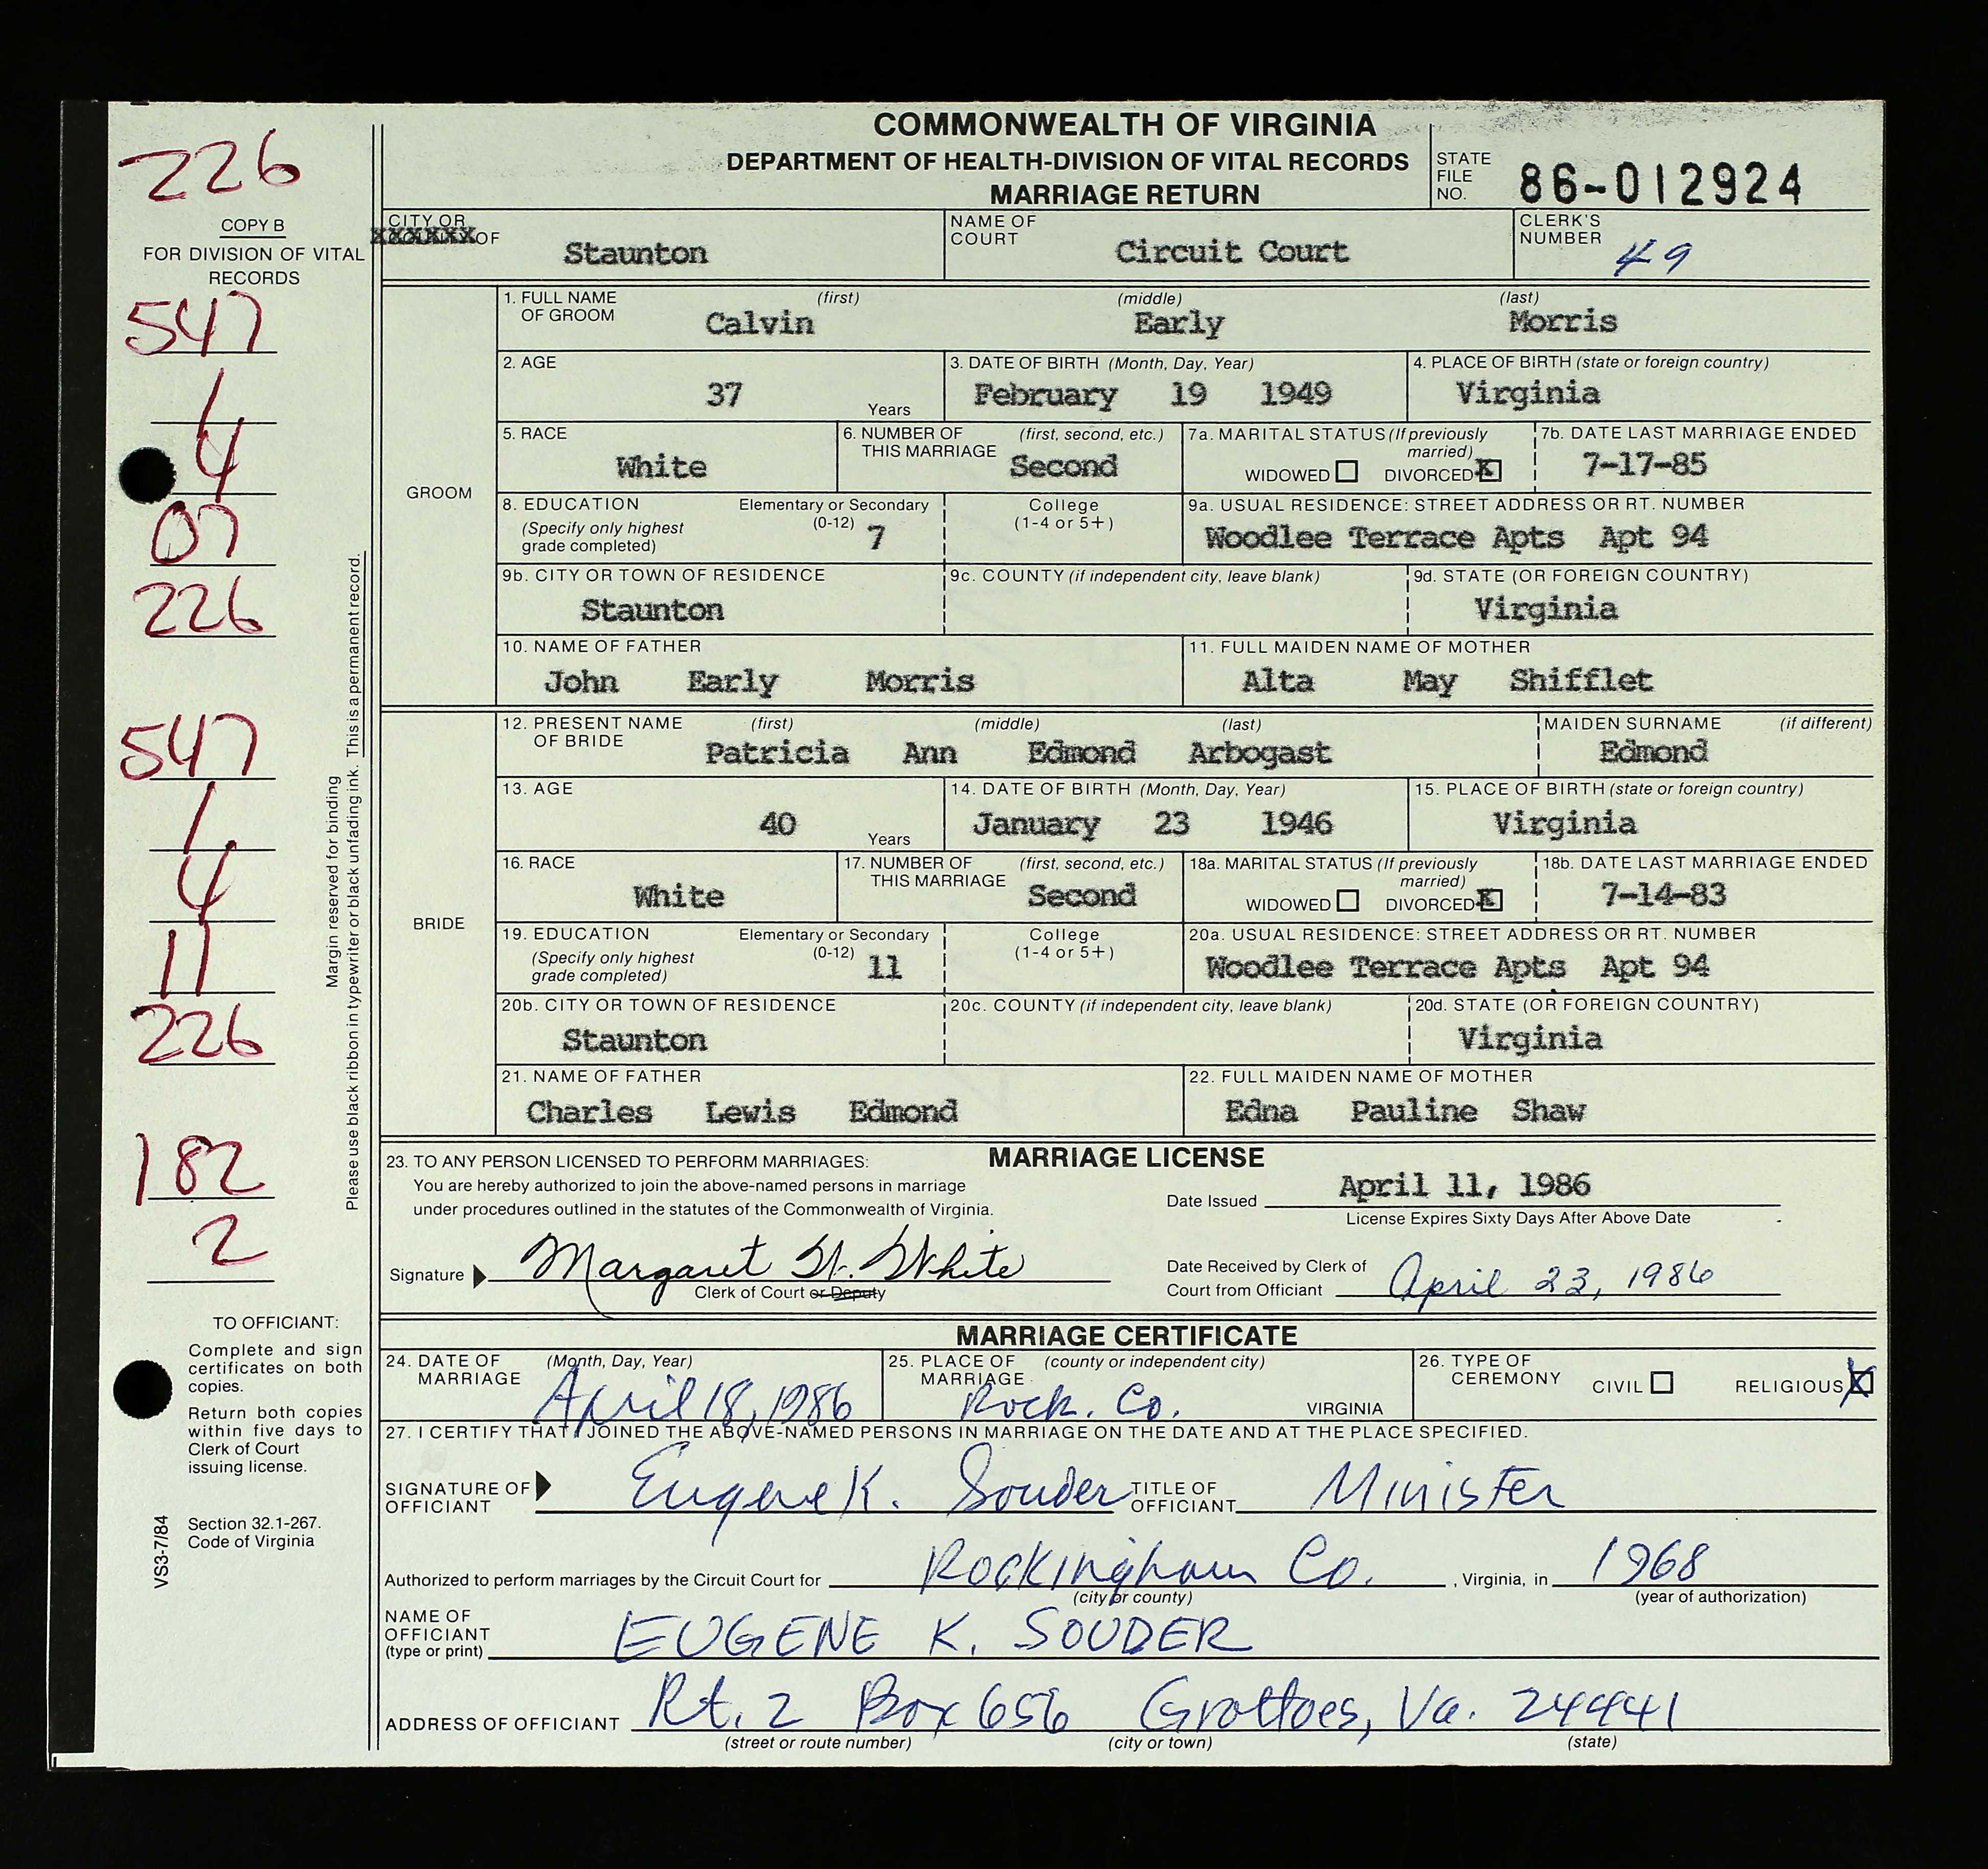 COMMONWEALTH OF VIRGINIA
DEPARTMENT OF HEALTH-DIVISION OF VITAL RECORDS
MARRIAGE RETURN
STATE FILE NO. 86-012924
226
COPY B
FOR DIVISION OF VITAL RECORDS
547
1
4
07
226
547
1
4
11
226
182
2
Margin reserved for binding
Please use black ribbon in typewriter or black unfading ink. This is a permanent record.
TO OFFICIANT:
Complete and sign
certificates on both
copies.
Return both copies
within five days to
Clerk of Court
issuing license.
Section 32.1-267.
Code of Virginia
VS3-7/84
CITY OR XXXXXX OF Staunton
NAME OF COURT Circuit Court
CLERK'S NUMBER 49
GROOM
1. FULL NAME OF GROOM (first) (middle) (last)
Calvin Early Morris
2. AGE 37 Years
3. DATE OF BIRTH (Month, Day, Year) February 19 1949
4. PLACE OF BIRTH (state or foreign country) Virginia
5. RACE White
6. NUMBER OF THIS MARRIAGE (first, second, etc.) Second
7a. MARITAL STATUS (If previously married) WIDOWED DIVORCED X
7b. DATE LAST MARRIAGE ENDED 7-17-85
8. EDUCATION (Specify only highest grade completed) Elementary or Secondary (0-12) 7 College (1-4 or 5+)
9a. USUAL RESIDENCE: STREET ADDRESS OR RT. NUMBER Woodlee Terrace Apts Apt 94
9b. CITY OR TOWN OF RESIDENCE Staunton
9c. COUNTY (if independent city, leave blank)
9d. STATE (OR FOREIGN COUNTRY) Virginia
10. NAME OF FATHER John Early Morris
11. FULL MAIDEN NAME OF MOTHER Alta May Shifflet
BRIDE
12. PRESENT NAME OF BRIDE (first) (middle) (last) Patricia Ann Edmond Arbogast
MAIDEN SURNAME (if different) Edmond
13. AGE 40 Years
14. DATE OF BIRTH (Month, Day, Year) January 23 1946
15. PLACE OF BIRTH (state or foreign country) Virginia
16. RACE White
17. NUMBER OF THIS MARRIAGE (first, second, etc.) Second
18a. MARITAL STATUS (If previously married) WIDOWED DIVORCED X
18b. DATE LAST MARRIAGE ENDED 7-14-83
19. EDUCATION (Specify only highest grade completed) Elementary or Secondary (0-12) 11 College (1-4 or 5+)
20a. USUAL RESIDENCE: STREET ADDRESS OR RT. NUMBER Woodlee Terrace Apts Apt 94
20b. CITY OR TOWN OF RESIDENCE Staunton
20c. COUNTY (if independent city, leave blank)
20d. STATE (OR FOREIGN COUNTRY) Virginia
21. NAME OF FATHER Charles Lewis Edmond
22. FULL MAIDEN NAME OF MOTHER Edna Pauline Shaw
MARRIAGE LICENSE
23. TO ANY PERSON LICENSED TO PERFORM MARRIAGES:
You are hereby authorized to join the above-named persons in marriage
under procedures outlined in the statutes of the Commonwealth of Virginia.
Date Issued April 11, 1986
License Expires Sixty Days After Above Date
Signature Margaret H. White
Clerk of Court or Deputy
Date Received by Clerk of Court from Officiant April 23, 1986
MARRIAGE CERTIFICATE
24. DATE OF MARRIAGE (Month, Day, Year) April 18, 1986
25. PLACE OF MARRIAGE (county or independent city) Rock. Co. VIRGINIA
26. TYPE OF CEREMONY CIVIL RELIGIOUS X
27. I CERTIFY THAT I JOINED THE ABOVE-NAMED PERSONS IN MARRIAGE ON THE DATE AND AT THE PLACE SPECIFIED.
SIGNATURE OF OFFICIANT Eugene K. Souder TITLE OF OFFICIANT Minister
Authorized to perform marriages by the Circuit Court for Rockingham Co., Virginia, in 1968
(city or county) (year of authorization)
NAME OF OFFICIANT (type or print) EUGENE K. SOUDER
ADDRESS OF OFFICIANT Rt. 2 Box 656 Grottoes, Va. 24441
(street or route number) (city or town) (state)